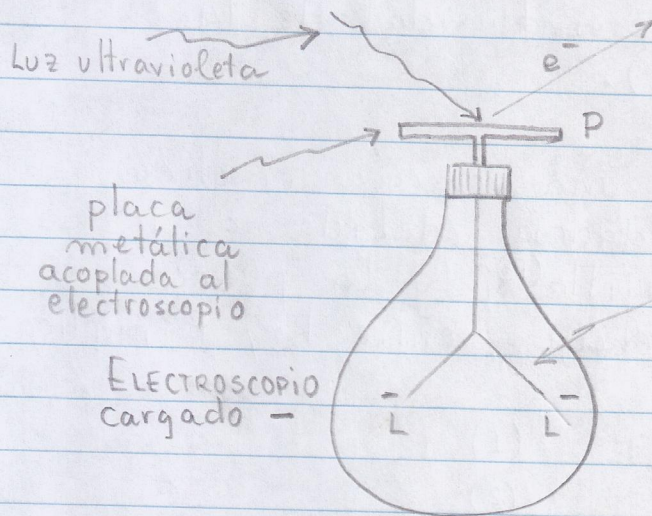 Luz ultravioleta
e⁻
P
placa
metálica
acoplada al
electroscopio
ELECTROSCOPIO
cargado -
- -
L L